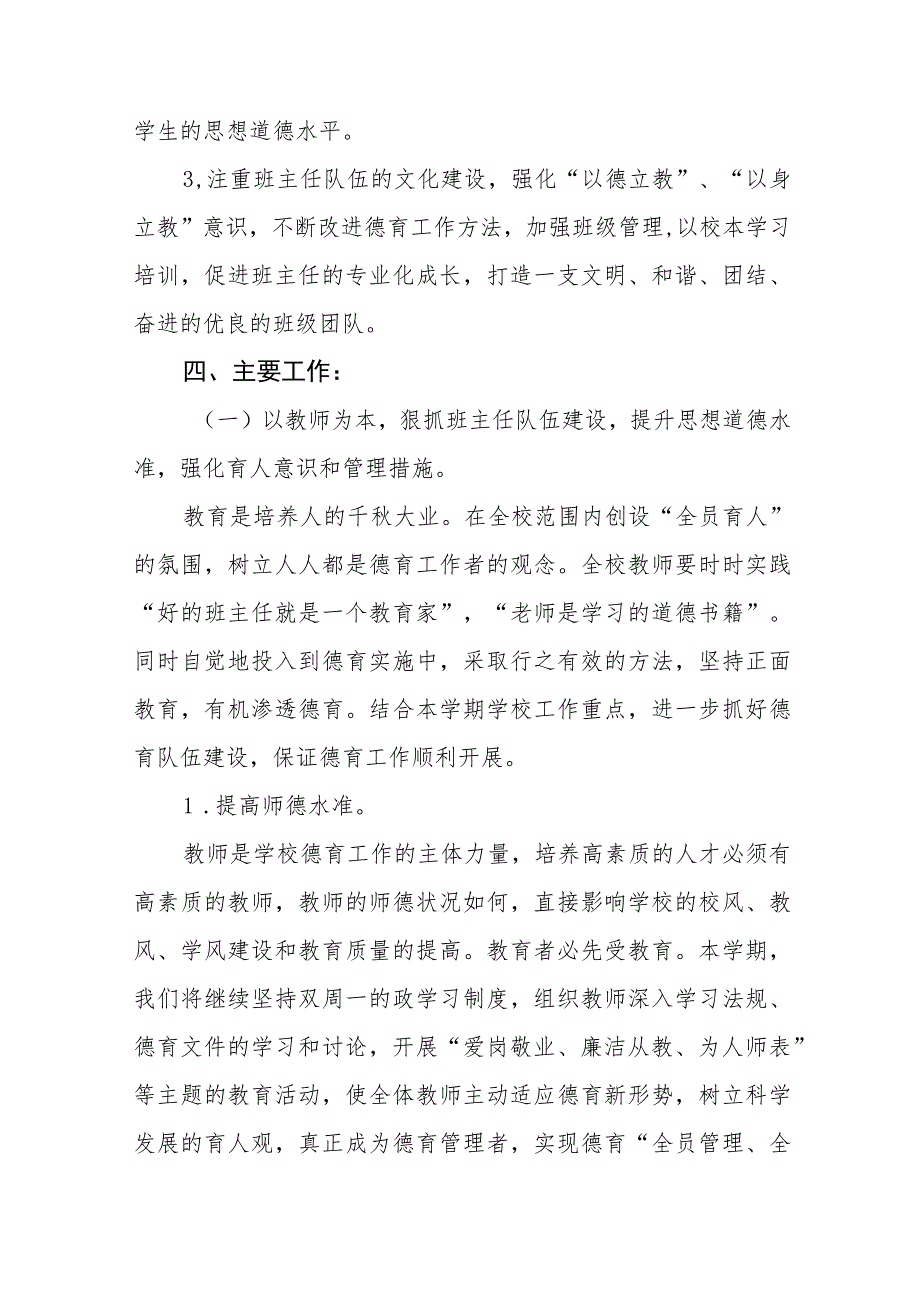 学生的思想道德水平。
3,注重班主任队伍的文化建设，强化“以德立教”、“以身
立教”意识，不断改进德育工作方法，加强班级管理,以校本学习
培训，促进班主任的专业化成长，打造一支文明、和谐、团结、
奋进的优良的班级团队。
四、主要工作：
（一）以教师为本，狠抓班主任队伍建设，提升思想道德水
准，强化育人意识和管理措施。
教育是培养人的千秋大业。在全校范围内创设“全员育人”
的氛围，树立人人都是德育工作者的观念。全校教师要时时实践
“好的班主任就是一个教育家”，“老师是学习的道德书籍”。
同时自觉地投入到德育实施中，采取行之有效的方法，坚持正面
教育，有机渗透德育。结合本学期学校工作重点，进一步抓好德
育队伍建设，保证德育工作顺利开展。
1 .提高师德水准。
教师是学校德育工作的主体力量，培养高素质的人才必须有
高素质的教师，教师的师德状况如何，直接影响学校的校风、教
风、学风建设和教育质量的提高。教育者必先受教育。本学期，
我们将继续坚持双周一的政学习制度，组织教师深入学习法规、
德育文件的学习和讨论，开展“爱岗敬业、廉洁从教、为人师表”
等主题的教育活动，使全体教师主动适应德育新形势，树立科学
发展的育人观，真正成为德育管理者，实现德育“全员管理、全